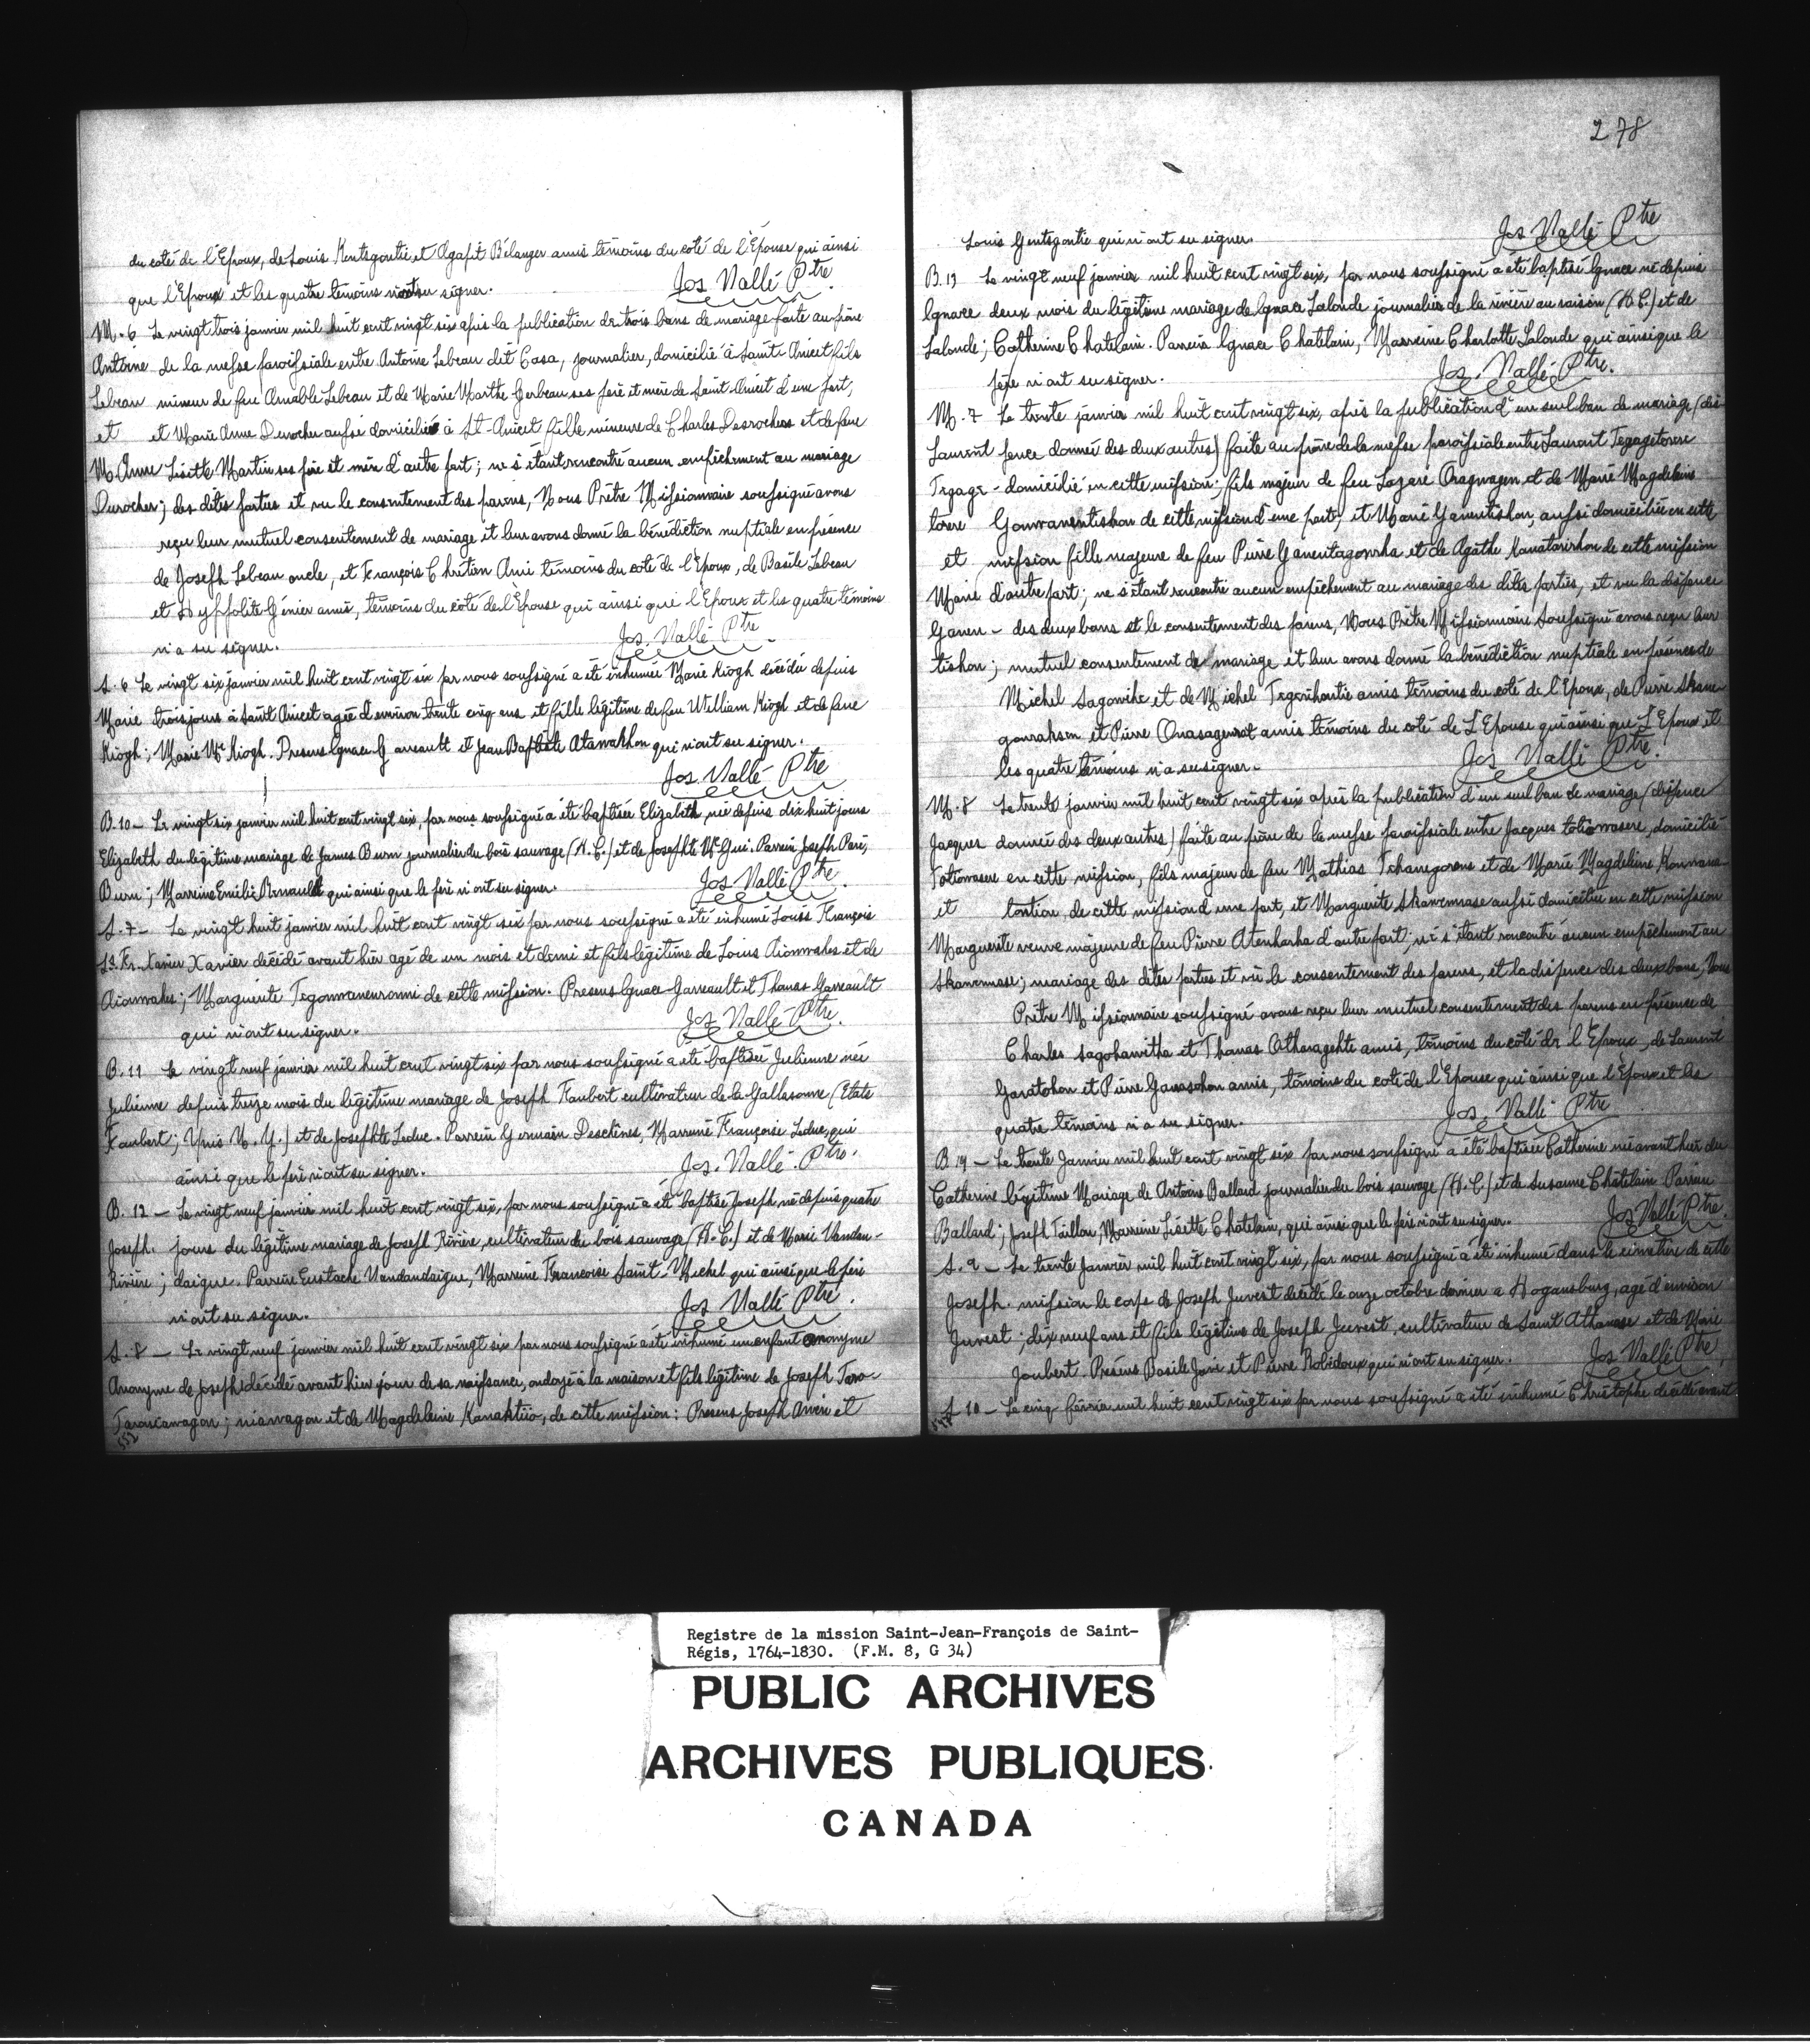 du coté de l'Epoux, de Louis Kentsgontie et Agapit Bélanger amis témoins du coté de l'Epouse qui ainsi
que l'Epoux et les quatre témoins n'ont su signer.
Jos Vallé Ptre
M. 6 Le vingt trois janvier mil huit cent vingt six après la publication de trois bans de mariage faite au prône
Antoine de la messe paroissiale entre Antoine Lebeau dit Casa, journalier, domicilié à Saint Anicet fils
Lebeau mineur de feu Amable Lebeau et de Marie Marthe Gerbeau ses père et mère de Saint Anicet d'une part,
et et Marie Anne Derocher aussi domiciliée à St. Anicet fille mineure de Charles Desrochers et de feue
M. Anne Lisette Martin ses père et mère d'autre part; ne s'étant rencontré aucun empêchement au mariage
Durocher; des dites parties et vu le consentement des parens, Nous Prêtre Missionnaire soussigné avons
reçu leur mutuel consentement de mariage et leur avons donné la bénédiction nuptiale en présence
de Joseph Lebeau oncle, et François Chrétien Ami témoins du coté de l'Epoux, de Basile Lebeau
et Hyppolite Génier amis, témoins du côté de l'Epouse qui ainsi que l'Epoux et les quatre témoins
n'a su signer.
Jos. Vallé Ptre
S. 6 Le vingt six janvier mil huit cent vingt six par nous soussigné a été inhumée Marie Kiogh décédée depuis
Marie trois jours à Saint Anicet agée d'environ trente cinq ans et fille légitime de feu William Kiogh et de feue
Kiogh; Marie Mc Kiogh. Presens Ignace Garreault et Jean Baptiste Atawakhon qui n'ont su signer.
Jos. Vallé Ptre
B. 10 — Le vingt six janvier mil huit cent vingt six, par nous soussigné a été baptisée Elizabeth, née depuis dix huit jours
Elizabeth du légitime mariage de James Burn journalier du bois sauvage (H. C.) et de Josephte Mc Gui. Parrein Joseph Paré,
Burn; Marreine Emélie Renault qui ainsi que le père n'ont su signer.
Jos Vallé Ptre.
S. 7 — Le vingt huit janvier mil huit cent vingt six par nous soussigné a été inhumé Louis François
Ls. Fr. Xavier Xavier décédé avant hier agé de un mois et demi et fils légitime de Louis Aionwahes et de
Aionwahes; Marguerite Tegonwanenronni de cette mission. Presens Ignace Garreault et Thomas Garreault
qui n'ont su signer.
Jos Vallé Ptre.
B. 11 Le vingt neuf janvier mil huit cent vingt six par nous soussigné a été baptisée Julienne née
Julienne depuis treize mois du légitime mariage de Joseph Faubert cultivateur de la Gallesonne (Etats
Faubert; Unis N. Y.) et de Josephte Leduc. Parrein Germain Deschênes, Marreine Françoise Leduc, qui
ainsi que le père n'ont su signer.
Jos. Vallé. Ptre.
B. 12 — Le vingt neuf janvier mil huit cent vingt six, par nous soussigné a été baptisé Joseph né depuis quatre
Joseph. jours du légitime mariage de Joseph Rivière, cultivateur du bois sauvage (H. C.) et de Marie Vandan-
Rivière; daigue. Parrein Eustache Vandandaigue, Marreine Francoise Saint-Michel qui ainsi que le père
n'ont su signer.
Jos Vallé Ptre.
S. 8 — Le vingt neuf janvier mil huit cent vingt six par nous soussigné a été inhumé un enfant anonyme
Anonyme de Joseph décédé avant hier jour de sa naissance, ondoyé à la maison et fils légitime de Joseph Taro-
Taroniawagon; niawagon et de Magdeleine Kanaktiio, de cette mission: Presens Joseph Aniri et
552
278
Louis Gentsgontie qui n'ont su signer.
Jos Vallé Ptre
B. 13 Le vingt neuf janvier mil huit cent vingt six, par nous soussigné a été baptisé Ignace né depuis
Ignace deux mois du légitime mariage de Ignace Lalonde journalier de la rivière au raisin (H. C.) et de
Lalonde; Catherine Chatelain. Parrein Ignace Chatelain, Marreine Charlotte Lalonde qui ainsi que le
père n'ont su signer.
Jos. Vallé Ptre.
M. 7 Le trente janvier mil huit cent vingt six, après la publication d'un seul ban de mariage (dis-
Laurent pence donnée des deux autres) faite au prône de la messe paroissiale entre Laurent Tegagetorere
Tegage- domicilié en cette mission; fils majeur de feu Lazare Onagwagen et de Marie Magdeleine
torere Gonwanentishon de cette mission d'une part; et Marie Ganentishon, aussi domiciliée en cette
et mission fille majeure de feu Pierre Ganentagonrha et de Agathe Kanatarirhon de cette mission
Marie d'autre part; ne s'étant rencontré aucun empêchement au mariage des dites parties, et vu la dispence
Ganen- des deux bans et le consentement des parens, Nous Prêtre Missionnaire Soussigné avons reçu leur
tishon; mutuel consentement de mariage et leur avons donné la bénédiction nuptiale en présence de
Michel Sagowihe et de Michel Tegenhontie amis témoins du coté de l'Epoux, de Pierre Skane-
gonrahson et Pierre Onasagenrat amis témoins du coté de L'Epouse qui ainsi que L'Epoux et
les quatre témoins n'a su signer.
Jos Vallé Ptre.
M. 8 Le trente janvier mil huit cent vingt six après la publication d'un seul ban de mariage (dispence
Jacques donnée des deux autres) faite au prône de la messe paroissiale entre Jacques Totiowasere, domicilié
Totiowasere en cette mission, fils majeur de feu Mathias Tehanegorens et de Marie Magdeleine Konwana-
et tontion, de cette mission d'une part, et Marguerite Skawennase aussi domiciliée en cette mission
Marguerite veuve majeure de feu Pierre Atenharha d'autre part; ne s'étant rencontré aucun empêchement au
Skawennase; mariage des dites parties et vu le consentement des parens, et la dispence des deux bans, Nous
Prêtre Missionnaire soussigné avons reçu leur mutuel consentement des parens en présence de
Charles Sagohawitha et Thomas Atharagehte amis, témoins du côté de l'Epoux, de Laurent
Garatohon et Pierre Ganasohon amis, témoins du coté de l'Epouse qui ainsi que l'Epoux et les
quatre témoins n'a su signer.
Jos Vallé Ptre
B. 14 — Le trente Janvier mil huit cent vingt six par nous soussigné a été baptisée Catherine née avant hier du
Catherine légitime Mariage de Antoine Ballard journalier du bois sauvage (H. C.) et de Susanne Châtelain Parrein
Ballard; Joseph Taillon, Marreine Lisette Chatelain, qui ainsi que le père n'ont su signer.
Jos Vallé Ptre.
S. 9 — Le trente Janvier mil huit cent vingt six, par nous soussigné a été inhumé dans le cimetière de cette
Joseph. mission le corps de Joseph Juvest décédé le onze octobre dernier a Hogansburg, agé d'environ
Juvest; dix neuf ans et fils légitime de Joseph Juvest, cultivateur de Saint Athanase et de Marie
Joubert. Présens Basile Jani et Pierre Robidoux qui n'ont su signer.
Jos Vallé Ptre.
S 10 — Le cinq février mil huit cent vingt six par nous soussigné a été inhumé Christophe décédé avant
Registre de la mission Saint-Jean-François de Saint-
Régis, 1764-1830. (F.M. 8, G 34)
PUBLIC ARCHIVES
ARCHIVES PUBLIQUES
CANADA